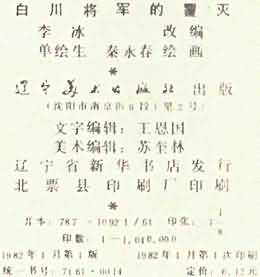 白川将军的覆灭
李冰 改编
单绘生 秦永春 绘画
*
辽宁美术出版社 出版
(沈阳市南京街6段1里2号)
文字编辑：王恩国
美术编辑：苏奎林
辽宁省新华书店发行
北票县印刷厂印刷
*
开本：787×1092 1/64 印张：1
印数：1—1,010,000
1982年1月第1版 1982年1月第1次印刷
统一书号：7161·0014 定价：0.12元